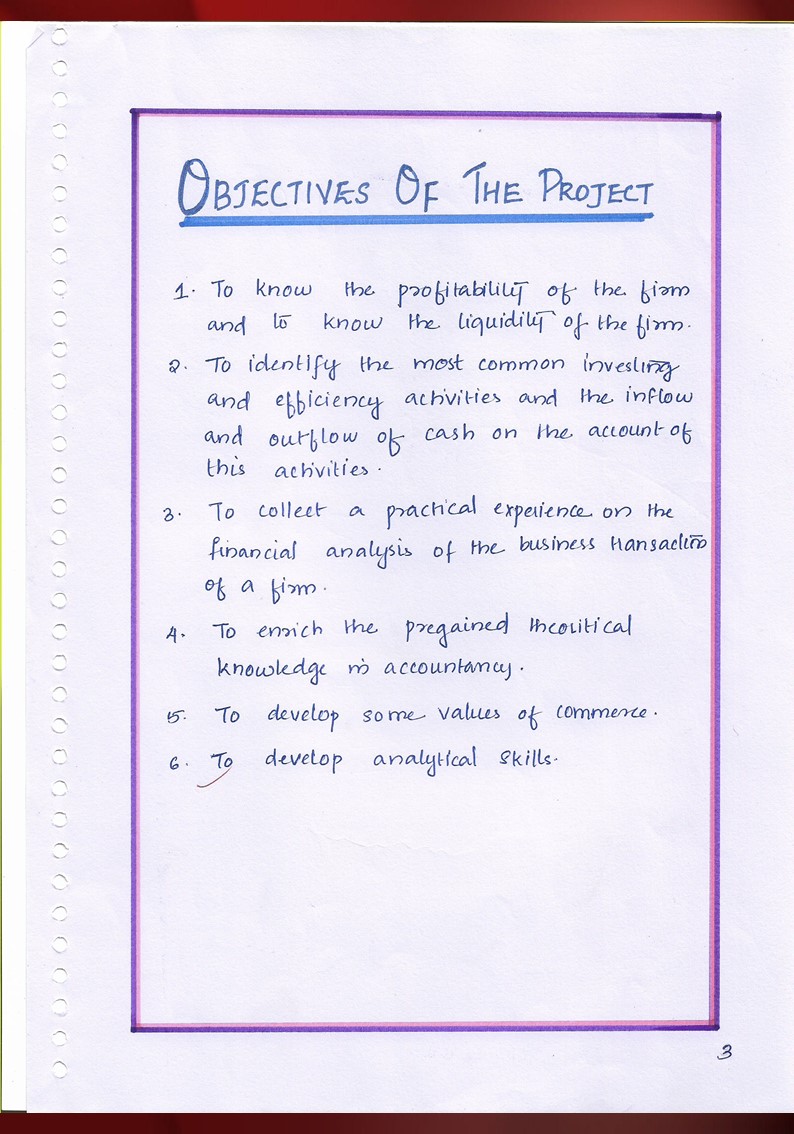 OBJECTIVES OF THE PROJECT
1. To know the profitability of the firm
and to know the liquidity of the firm.
2. To identify the most common investing
and efficiency activities and the inflow
and outflow of cash on the account of
this activities.
3. To collect a practical experience on the
financial analysis of the business transaction
of a firm.
4. To enrich the pregained theoritical
knowledge in accountancy.
5. To develop some values of commerce.
6. To develop analytical skills.
3